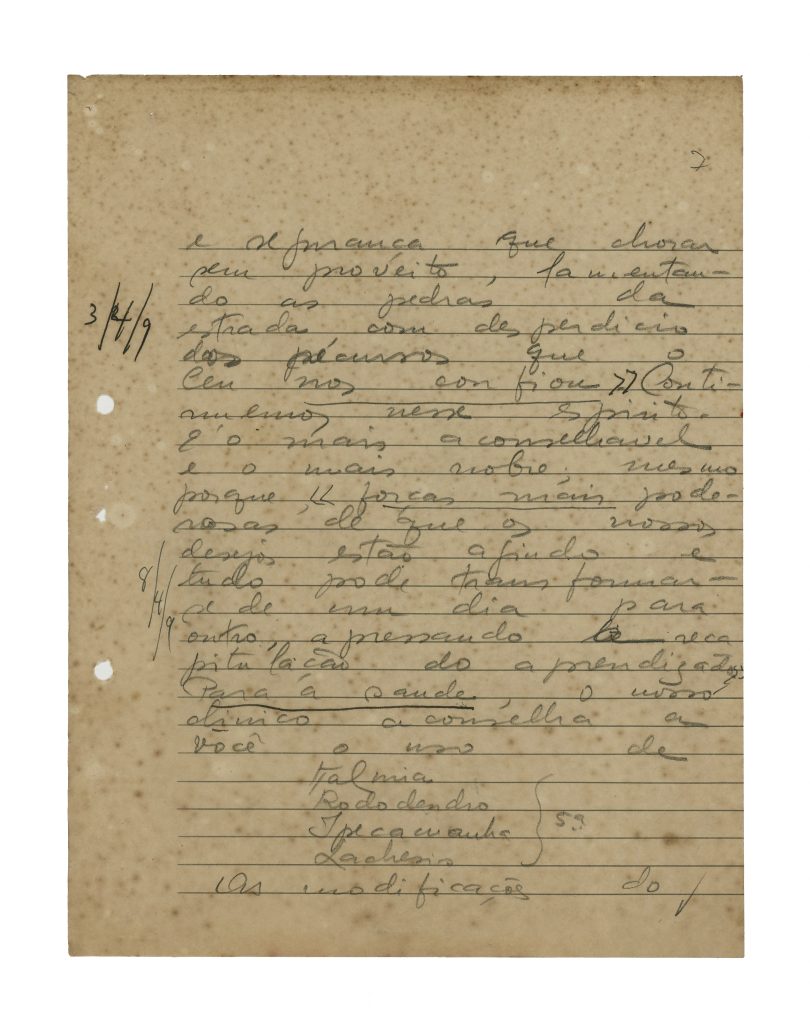 7
e segurança que chorar
sem proveito, lamentan-
do as pedras da
3/4/9
estrada com desperdicio
dos recursos que o
Ceu nos confiou >> Conti-
nuemos nesse espirito.
E' o mais aconselhavel
e o mais nobre, mesmo
porque, << forças mais pode-
rosas de que os nossos
desejos estão agindo e
8/4/9
tudo pode transformar-
se de um dia para
outro, apressando a reca
pitulação do aprendizado >>
Para a saude, o nosso
clinico aconselha a
você o uso de
Kalmia
Rododendro
Ipecacuanha
Lachesis
5ª
As modificações do